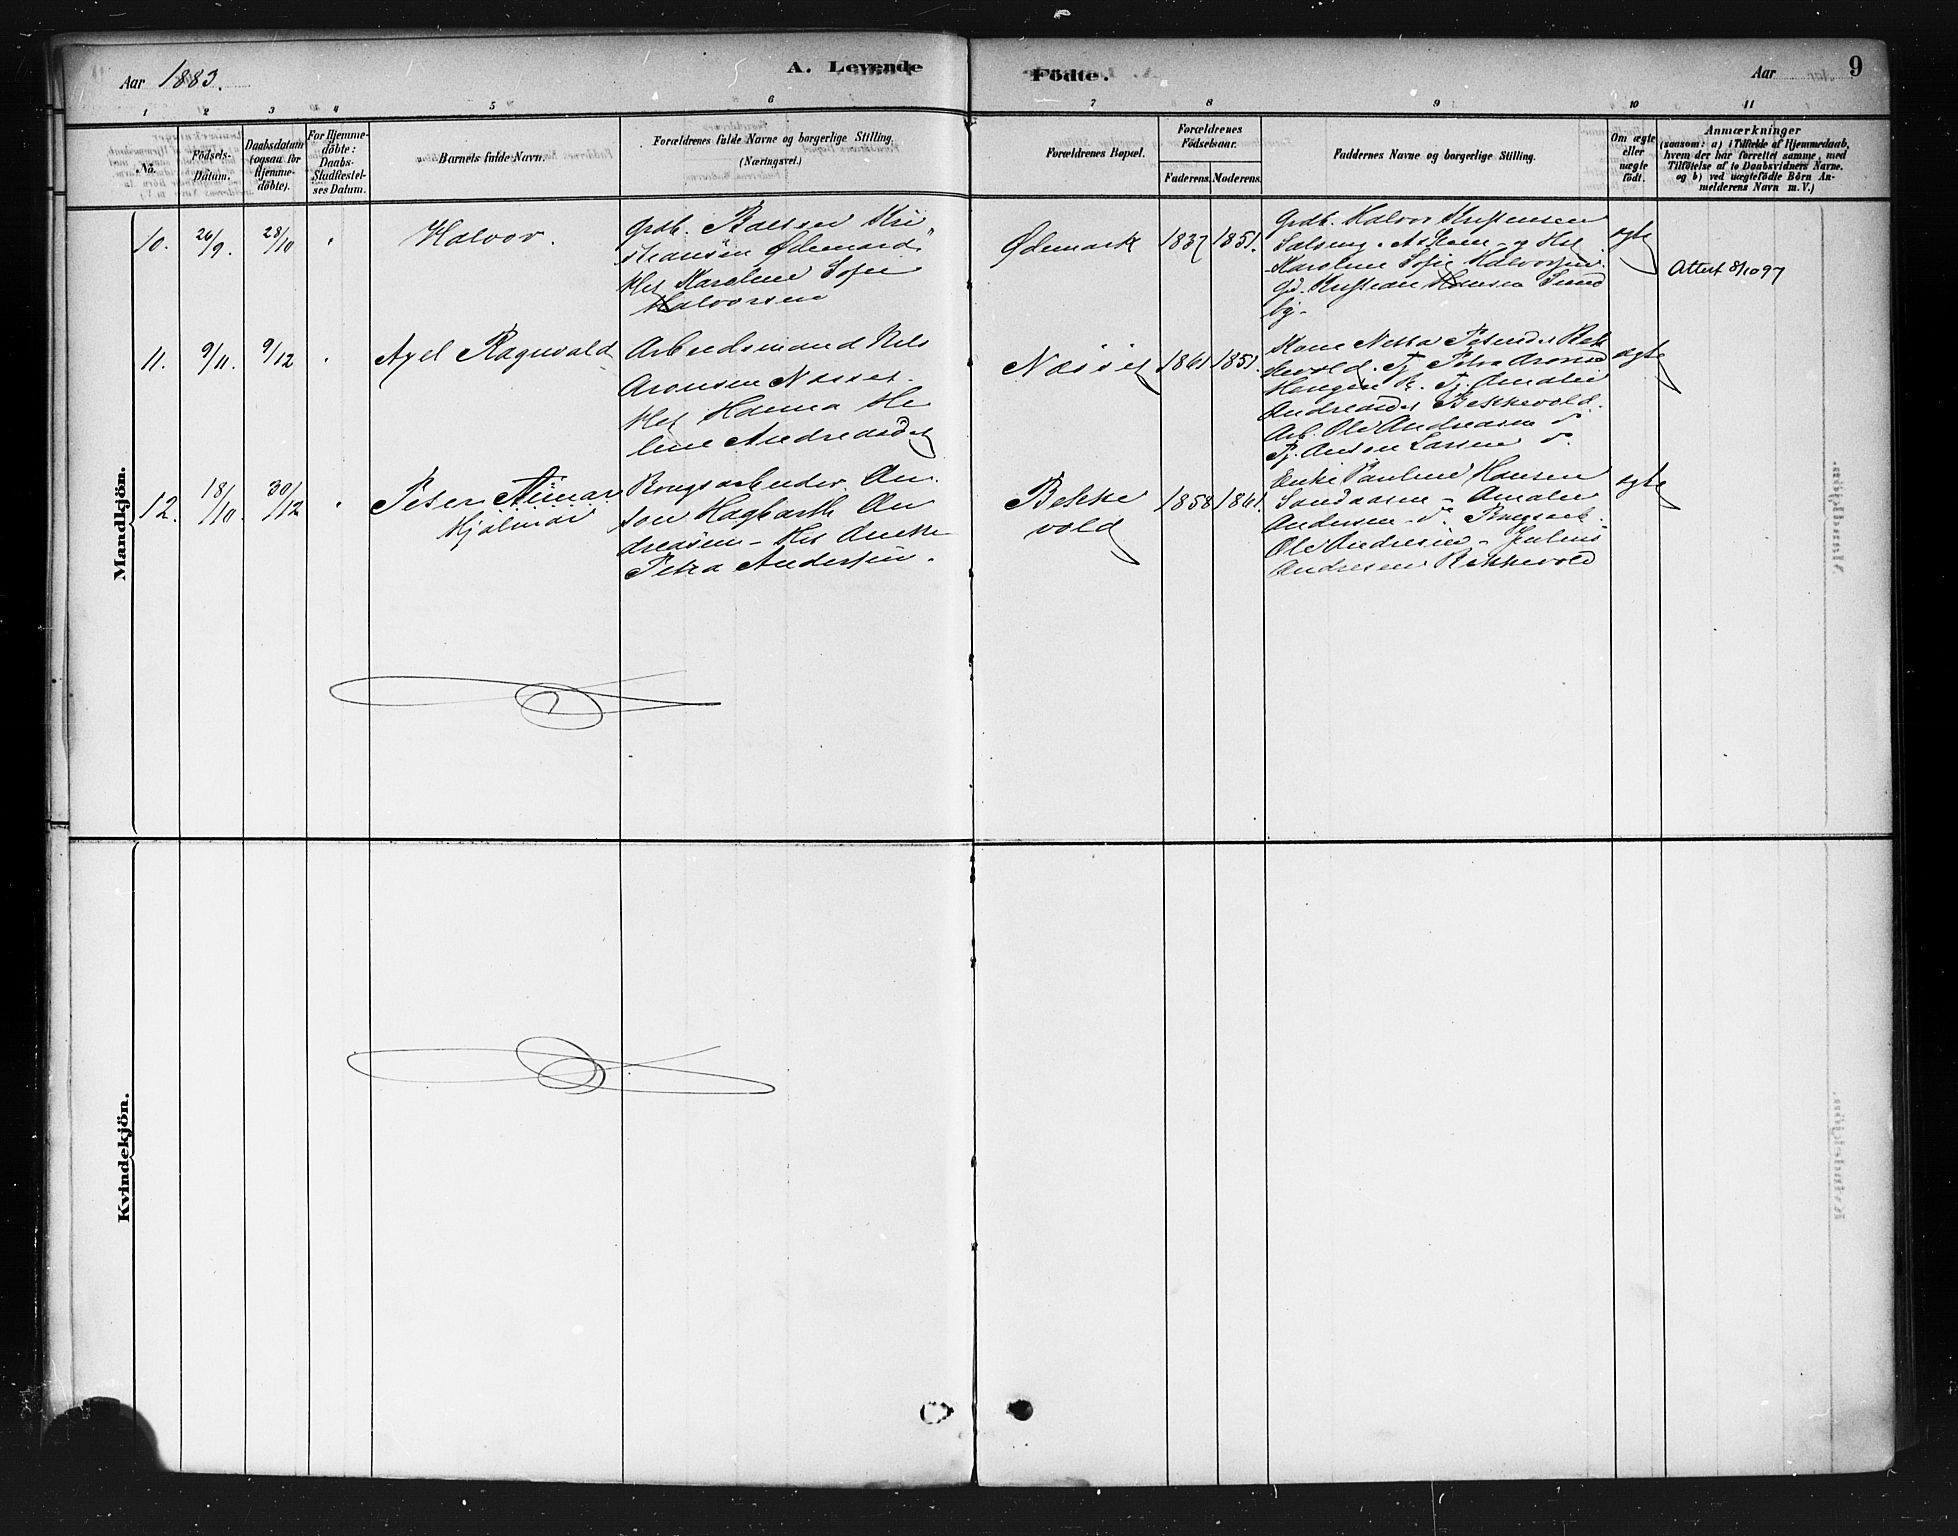 Aar 1883. A. Levende Födte. Aar 9
1 2 3 4 5 6 7 8 9 10 11
No. Födsels-Datum. Daabsdatum (ogsaa for Hjemme-döbte). For Hjemme-döbte: Daabs-Stadfæstel-ses Datum. Barnets fulde Navn. Forældrenes fulde Navne og borgerlige Stilling. (Næringsvei.) Forældrenes Bopæl. Forældrenes Födselsaar. Faderens. Moderens. Faddernes Navne og borgerlige Stilling. Om ægte eller uægte födt. Anmærkninger
(saasom: a) i Tilfælde af Hjemmedaab,
hvem der har forrettet samme, med
Tilföielse af to Daabsvidners Navne.
og b) ved uægtefödte Börn An-
melderens Navn m. V.)
Mandkjön.
10. 26/9. 28/10 " Halvor. Grdb. Baltser Kri
stiansen Ödemark
Hst Karoline Sofie
Halvorsen
Ødemark 1837 1851.
Grdb. Halvor Kristensen
Karoline Sofie Halvorsen.
Gd. Kristian Hansen Sund
by.
ægte
Attest 8/10 97
11. 9/11. 9/12 " Axel Ragnvald Arbeidsmand Nils
Aronsen Næsset.
Hst Hanna He
line Andreasdat
Næsset 1861 1851.
Kone Netta Petersdat Bek
kevold. Pj. Petra Aronsd
Haugen Pj. Amalie
Andreasdat Bekkevold.
Arb. Ole Andreasen do
Pj. Anton Larsen do.
ægte
12. 18/10. 30/12 " Peter Hjalmar Brugsarbeider An
ton Hagbarth An
dreasen - Hst Anette
Petra Andersen.
Bekke
vold
1858 1861.
Enke Pauline Hansen
Sandaasen - Amalie
Andersen - do. Brugsarb.
Ole Andresen - Julius
Andresen Bekkevold
ægte
Kvindekjön.